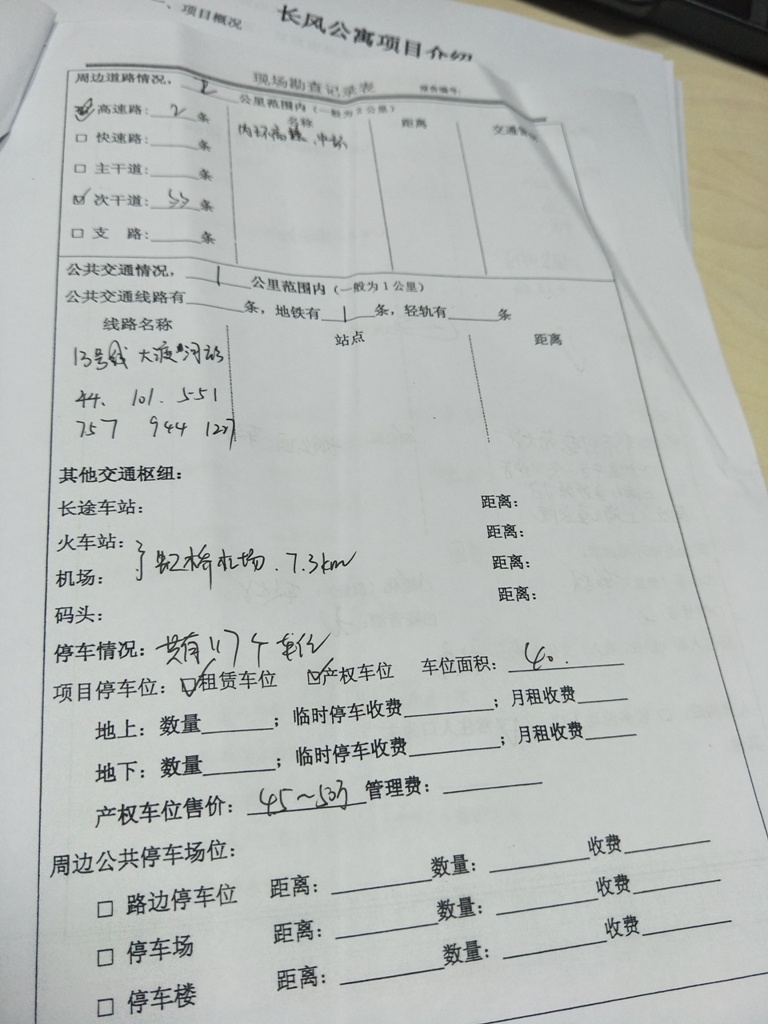 一、项目概况
长风公寓项目介绍
现场勘查记录表
周边道路情况，2 公里范围内（一般为2公里）
☑ 高速路：2 条 名称 距离
内环高 中环
□ 快速路：____条
□ 主干道：____条
☑ 次干道：____条
□ 支 路：____条
公共交通情况，1 公里范围内（一般为1公里）
公共交通线路有____条，地铁有 1 条，轻轨有____条
线路名称 站点 距离
13号线 大渡河路
44、101、551
757 944
其他交通枢纽：
长途车站： 距离：
火车站： 距离：
虹桥机场、7.3km
机场： 距离：
码头： 距离：
停车情况：共有117个车位
项目停车位：☑租赁车位 ☑产权车位 车位面积：40.
地上：数量____；临时停车收费____；月租收费____
地下：数量____；临时停车收费____；月租收费____
产权车位售价：45～50万 管理费：____
周边公共停车场位：
□ 路边停车位 距离：____数量：____收费____
□ 停车场 距离：____数量：____收费____
□ 停车楼 距离：____数量：____收费____